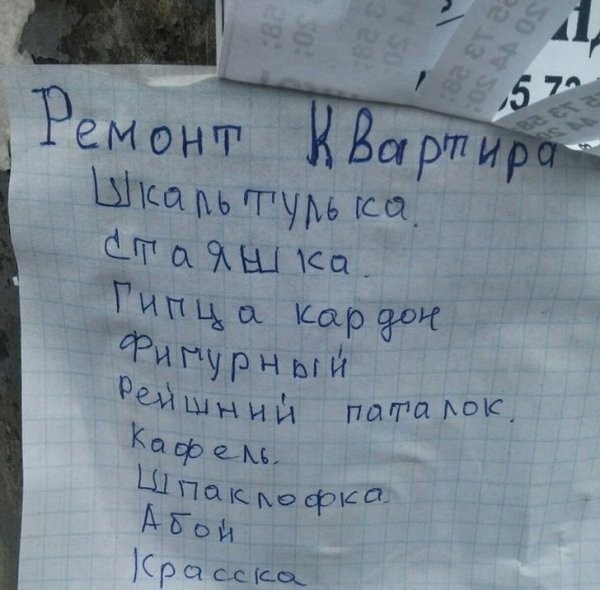 Ремонт Квартира
Шкальтулька.
стаяшка.
Гипца кардон
Фигурный
Рейшний паталок.
Кафель.
Шпаклофка
Абой
Красска